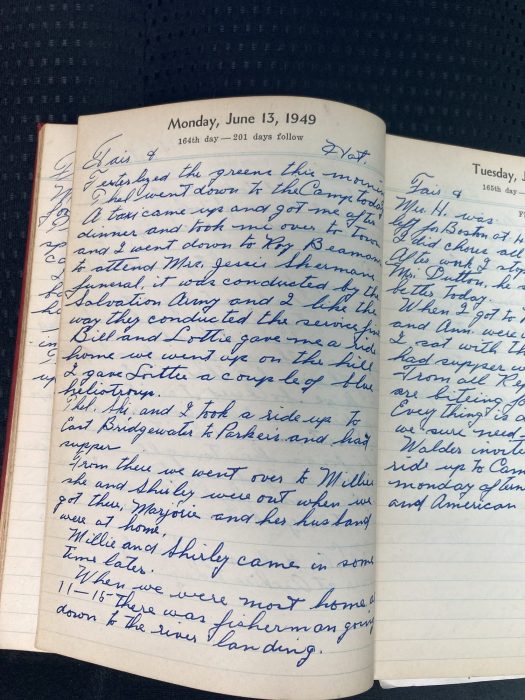 Monday, June 13, 1949
164th day — 201 days follow
Fair & Hot.
Festerlized the greens this morning
Thel went down to the Camp today
A taxi came up and got me after
dinner and took me over to town
and I went down to Roy Beamans
to attend Mrs. Jessie Shermans
funeral, it was conducted by the
Salvation Army and I like the
way they conducted the service fine
Bill and Lottie gave me a ride
home we went up on the hill
I gave Lottie a couple of blue
heliotroup.
Thel. Sh. and I took a ride up to
East Bridgewater to Parkers and had
supper
From there we went over to Millies
she and Shirley were out when we
got there, Marjorie and her husband
were at home.
Millie and Shirly came in some
time later.
When we were most home at
11-15 there was fisherman going
down to the river landing.
Tuesday, J
165th day
Fair &
Mr. H. was
left for Boston at
I did chores all
After work I sto
Mr. Dutton, he s
better today.
When I got to
and Ann were
I sat with th
had supper w
From all Re
are biteing fo
Everything is d
we sure need
Walder invite
ride up to Cam
monday aftern
and American